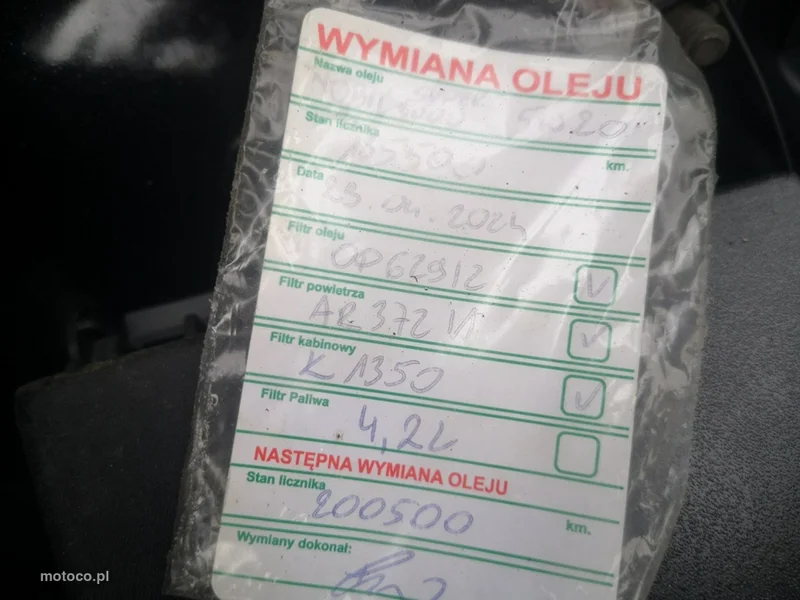 WYMIANA OLEJU
Nazwa oleju
5W20
Stan licznika
km.
Data
23.04.2024
Filtr oleju
OP629/2
V
Filtr powietrza
AR372
V
Filtr kabinowy
K 1350
V
Filtr Paliwa
4,2L
NASTĘPNA WYMIANA OLEJU
Stan licznika
200500
km.
Wymiany dokonał:
motoco.pl